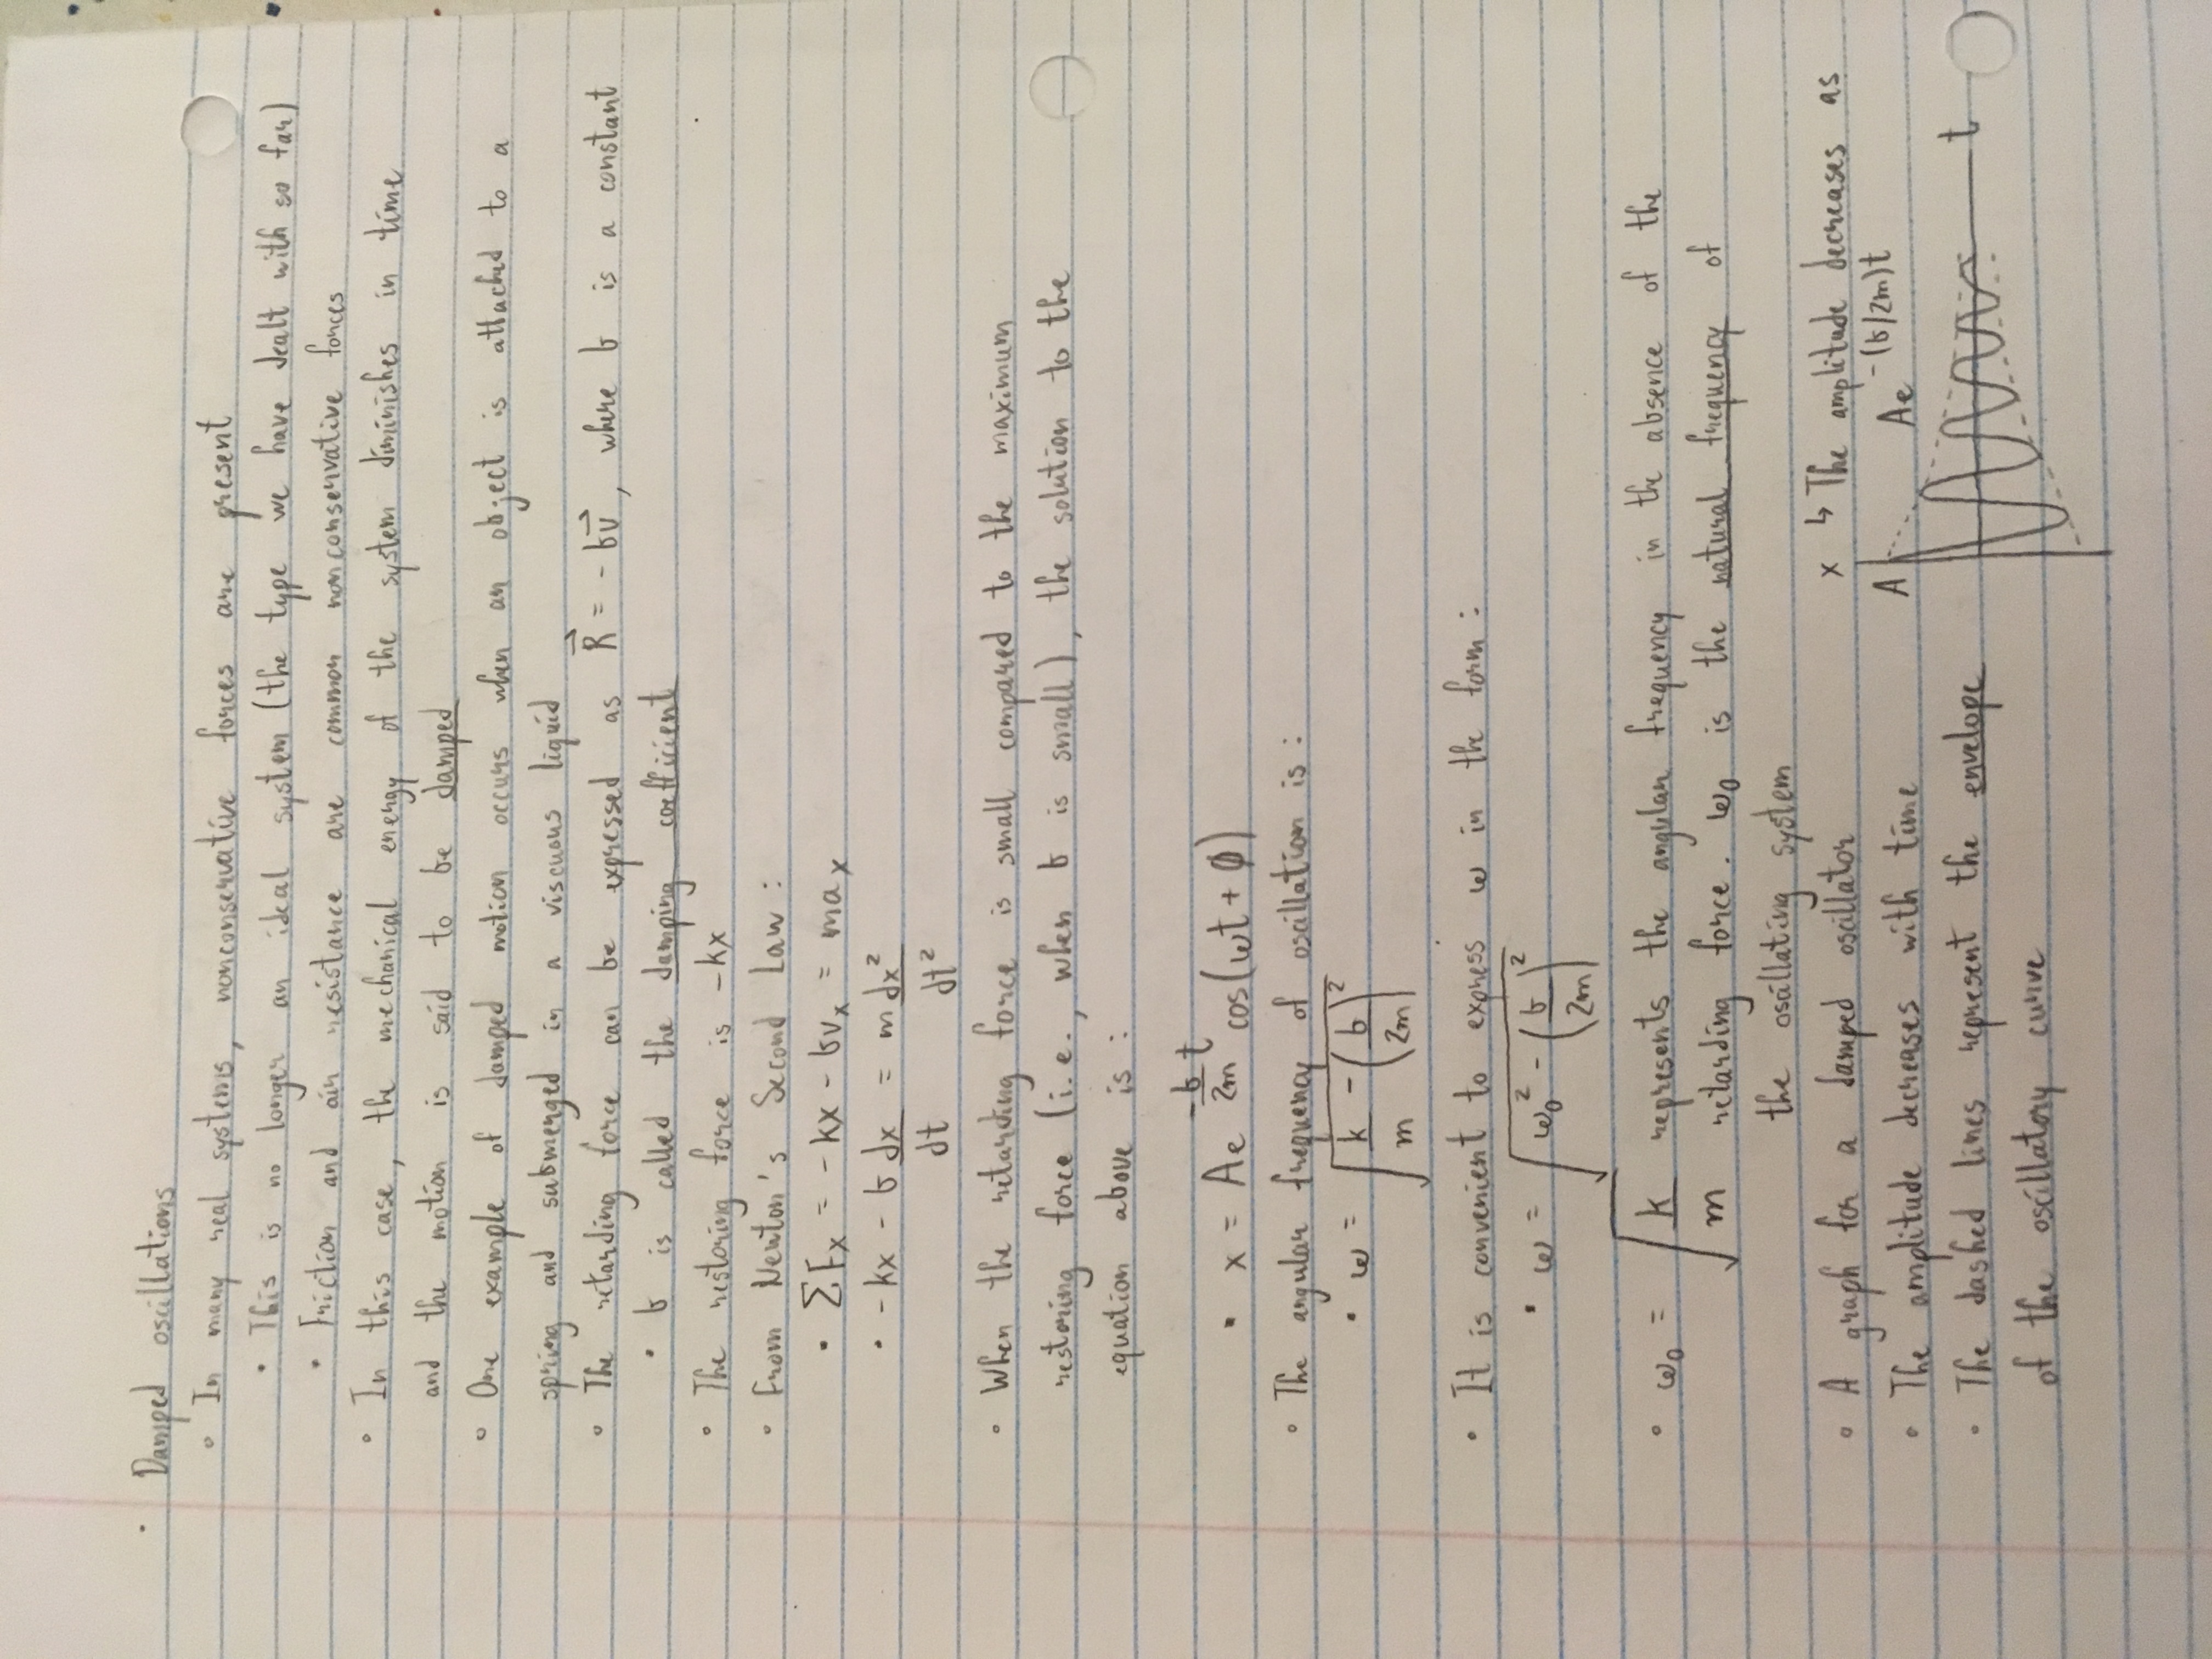 · Damped oscillations
∘ In many real systems, nonconservative forces are present
▪ This is no longer an ideal system (the type we have dealt with so far)
▪ Friction and air resistance are common nonconservative forces
∘ In this case, the mechanical energy of the system diminishes in time
and the motion is said to be damped
∘ One example of damped motion occurs when an object is attached to a
spring and submerged in a viscuous liquid
∘ The retarding force can be expressed as R⃗ = - bv⃗, where b is a constant
▪ b is called the damping coefficient
∘ The restoring force is -kx
∘ From Newton's Second Law:
▪ ∑Fx = -kx - bvx = max
▪ -kx - b dx/dt = m dx²/dt²
∘ When the retarding force is small compared to the maximum
restoring force (i.e., when b is small), the solution to the
equation above is:
▪ x = Ae^(-b/2m t) cos(ωt + ϕ)
∘ The angular frequency of oscillation is:
▪ ω = √(k/m - (b/2m)²)
∘ It is convenient to express ω in the form:
▪ ω = √(ω₀² - (b/2m)²)
∘ ω₀ = √(k/m) represents the angular frequency in the absence of the
retarding force. ω₀ is the natural frequency of
the oscillating system
∘ A graph for a damped oscillator
∘ The amplitude decreases with time
∘ The dashed lines represent the envelope
of the oscillatory curve
x ↳ The amplitude decreases as
Ae^-(b/2m)t
A
t